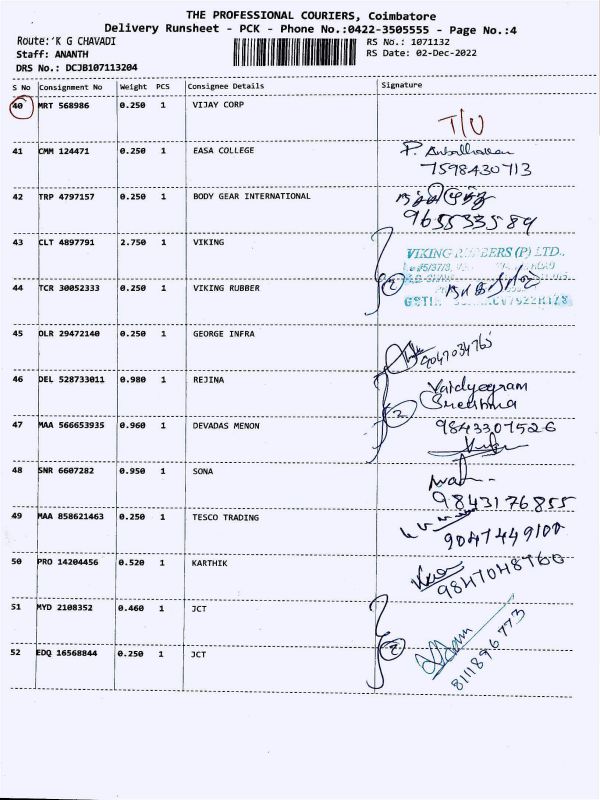 THE PROFESSIONAL COURIERS, Coimbatore
Delivery Runsheet - PCK - Phone No.:0422-3505555 - Page No.:4
Route: K G CHAVADI
RS No.: 1071132
Staff: ANANTH
RS Date: 02-Dec-2022
DRS No.: DCJB107113204
S No Consignment No Weight PCS Consignee Details Signature
40 MRT 568986 0.250 1 VIJAY CORP
T/U
41 CMM 124471 0.250 1 EASA COLLEGE
P.
7598430713
42 TRP 4797157 0.250 1 BODY GEAR INTERNATIONAL
9655533589
43 CLT 4897791 2.750 1 VIKING
VIKING RUBBERS (P) LTD.,
44 TCR 30052333 0.250 1 VIKING RUBBER
2
45 OLR 29472140 0.250 1 GEORGE INFRA
9047034765
46 DEL 528733011 0.980 1 REJINA
Vaidyagram
2
47 MAA 566653935 0.960 1 DEVADAS MENON
9843307526
48 SNR 6607282 0.950 1 SONA
9843176855
49 MAA 858621463 0.250 1 TESCO TRADING
9047449100
50 PRO 14204456 0.520 1 KARTHIK
9847048760
51 MYD 2108352 0.460 1 JCT
52 EDQ 16568844 0.250 1 JCT
2
8111896773